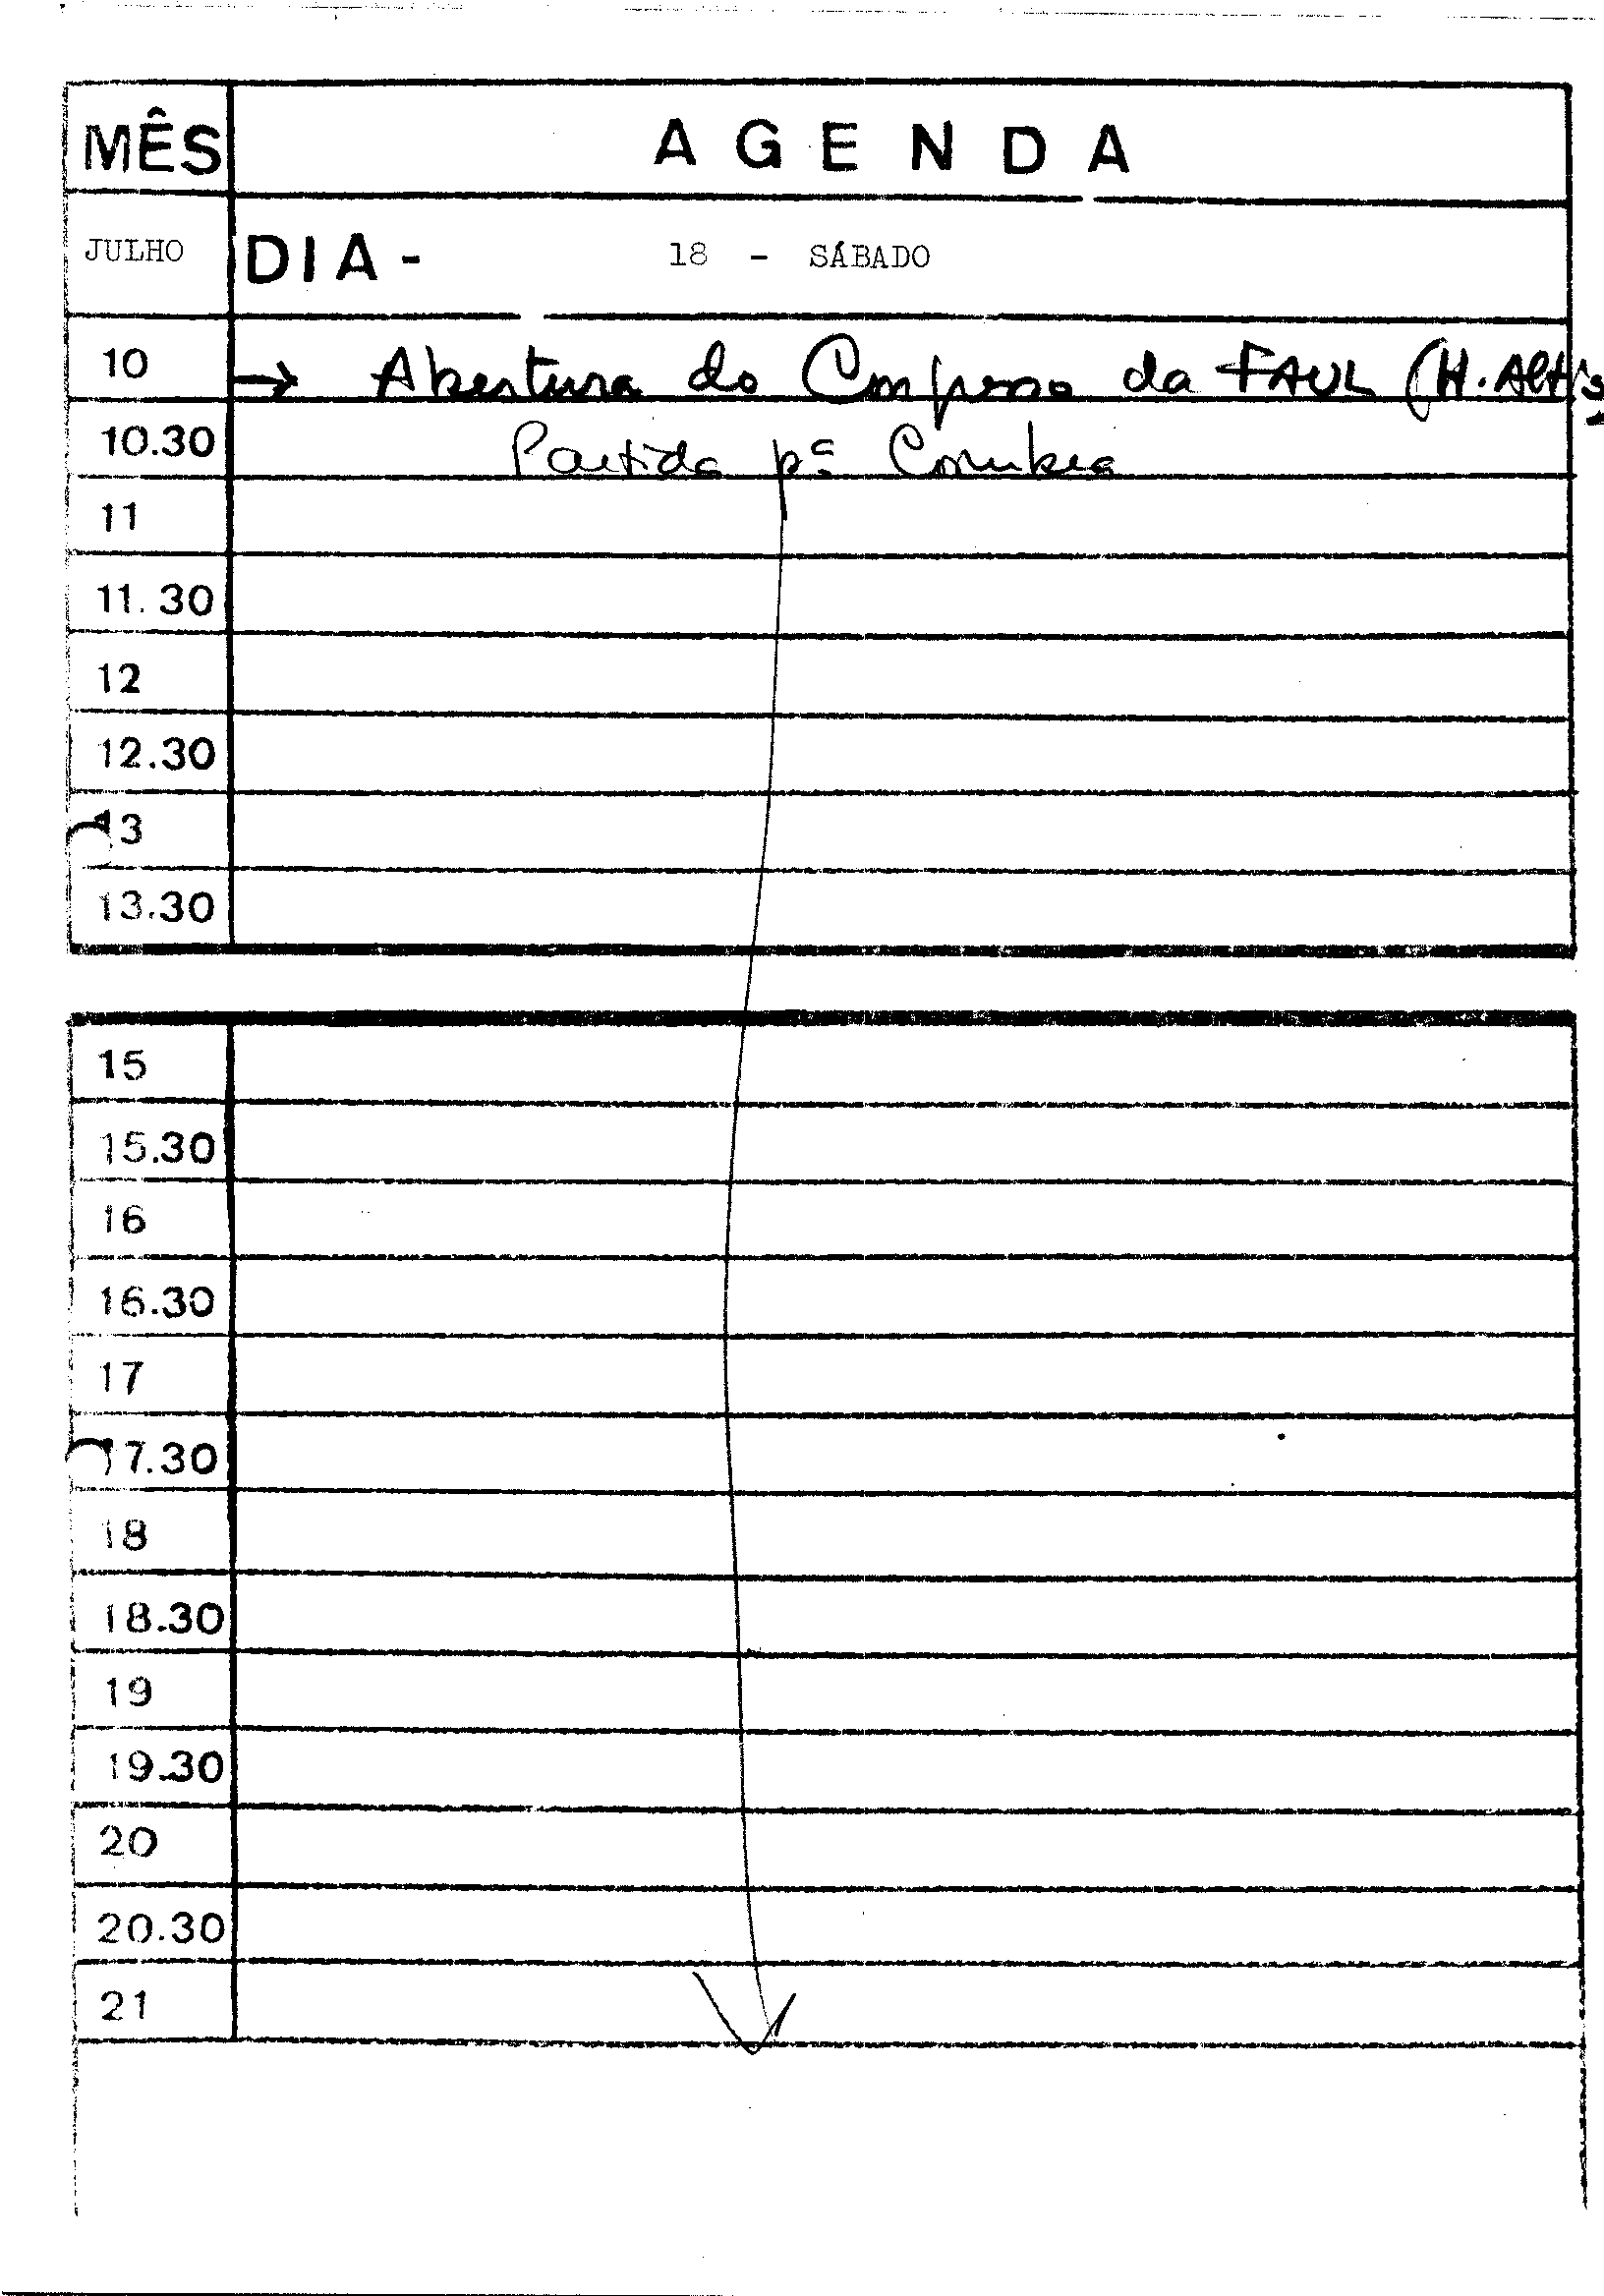 MÊS AGENDA
JULHO DIA - 18 - SÁBADO
10 → Abertura do Congresso da FAUL (H. Altis
10.30 Partida pª Coimbra
11
11.30
12
12.30
13
13.30
15
15.30
16
16.30
17
17.30
18
18.30
19
19.30
20
20.30
21